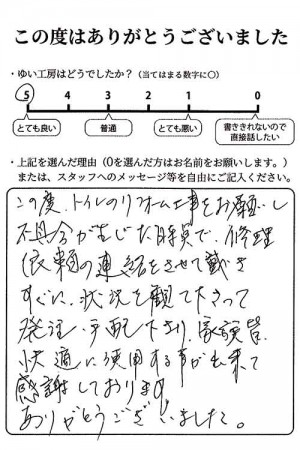 この度はありがとうございました
・ゆい工房はどうでしたか？（当てはまる数字に○）
5 4 3 2 1 0
とても良い 普通 とても悪い 書ききれないので直接話したい
・上記を選んだ理由（0を選んだ方はお名前をお願いします。）
または、スタッフへのメッセージ等を自由にご記入ください。
この度、トイレのリフォーム工事をお願いし
不具合が生じた時点で、修理
依頼の連絡をさせて戴き
すぐに、状況を観て下さって
発注、手配下さり、家族皆、
快適に使用する事が出来て
感謝しております。
ありがとうございました。